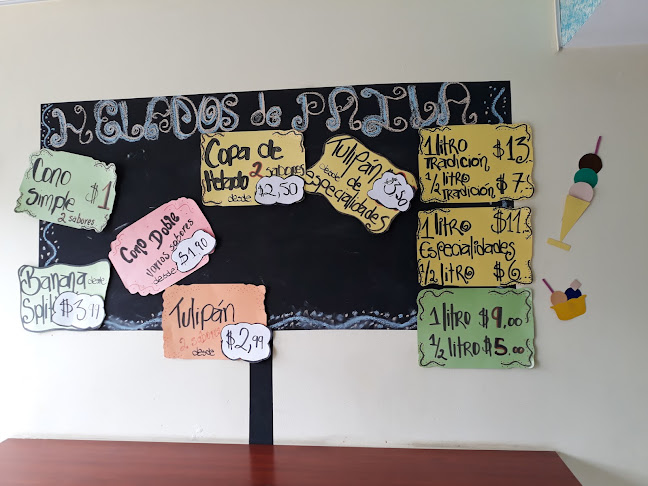 HELADOS de PAILA
Cono
Simple $1
2 sabores
Copa de
Helado 2 sabores
desde $2,50
Tulipán
desde de
especialidades
1 litro $13
TRADICIÓN
1/2 litro $7
TRADICIÓN
Cono Doble
Varios sabores
desde $1,90
1 litro $11
Especialidades
1/2 litro $6
Banana desde
Split
Tulipán
2 sabores
desde $2,99
1 litro $9,00
1/2 litro $5,00